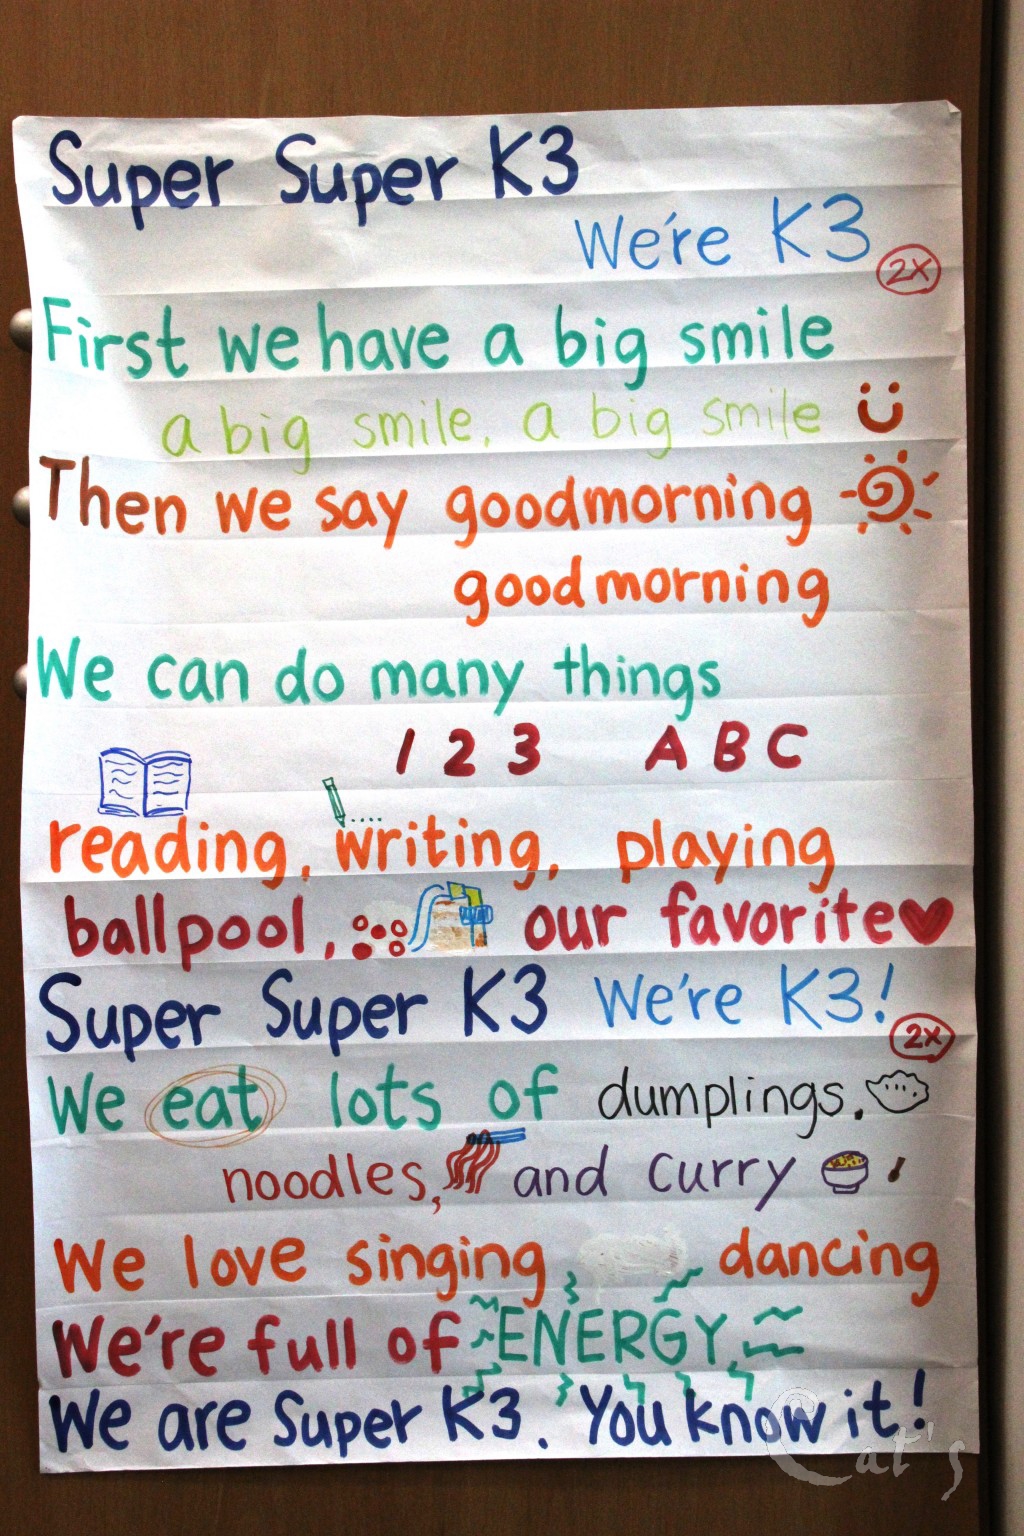 Super Super K3
We're K3 2x
First we have a big smile
a big smile, a big smile
Then we say goodmorning
goodmorning
We can do many things
1 2 3 A B C
reading, writing, playing
ballpool, our favorite
Super Super K3 We're K3!
2x
We eat lots of dumplings.
noodles, and curry
We love singing dancing
We're full of ENERGY
We are Super K3. You know it!
Cat's